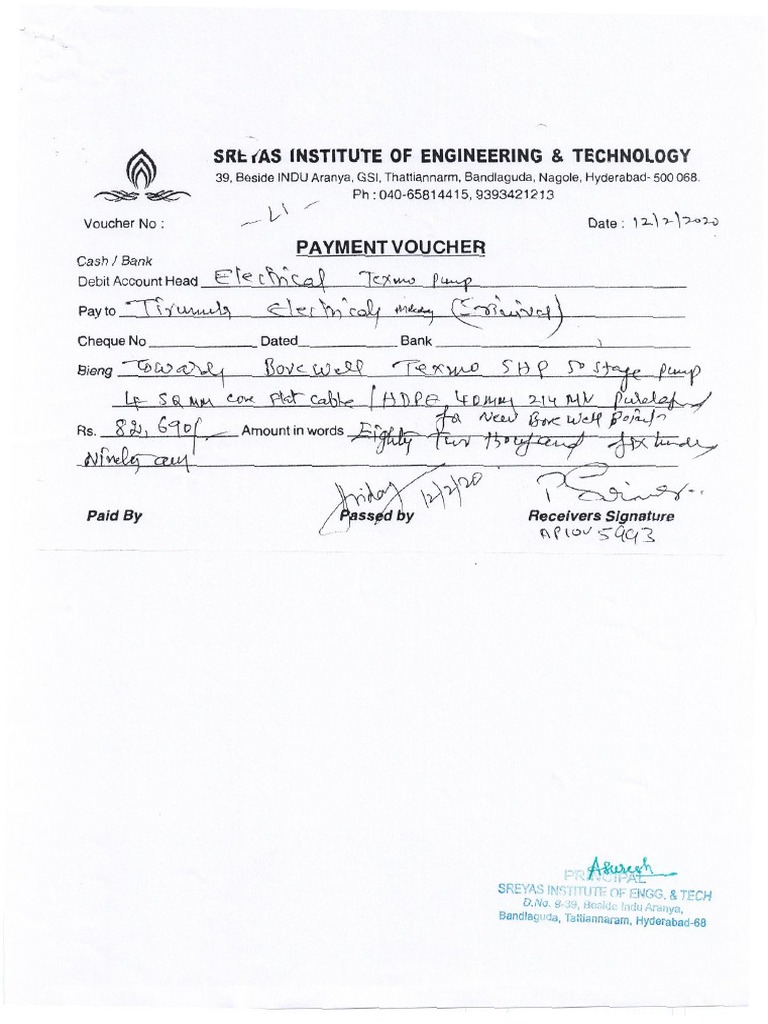 SREYAS INSTITUTE OF ENGINEERING & TECHNOLOGY
39, Beside INDU Aranya, GSI, Thattiannarm, Bandlaguda, Nagole, Hyderabad- 500 068.
Ph : 040-65814415, 9393421213
Voucher No :
Date : 12/2/2020
PAYMENT VOUCHER
Cash / Bank
Debit Account Head Electrical Texmo Pump
Pay to Tirumala Electricals
Cheque No Dated Bank
Bieng Towards Bore Well Texmo 5HP 50 Stage Pump
4 SQ MM core Flat Cable / HDPE 40MM 214 Mtr
for New Bore Well
Rs. 82,690/- Amount in words Eighty Two Thousand Six hundred
Ninety
12/2/20
Paid By Passed by Receivers Signature
AP10V 5993
PRINCIPAL
SREYAS INSTITUTE OF ENGG. & TECH
D.No. 9-39, Beside Indu Aranya,
Bandlaguda, Tattiannaram, Hyderabad-68